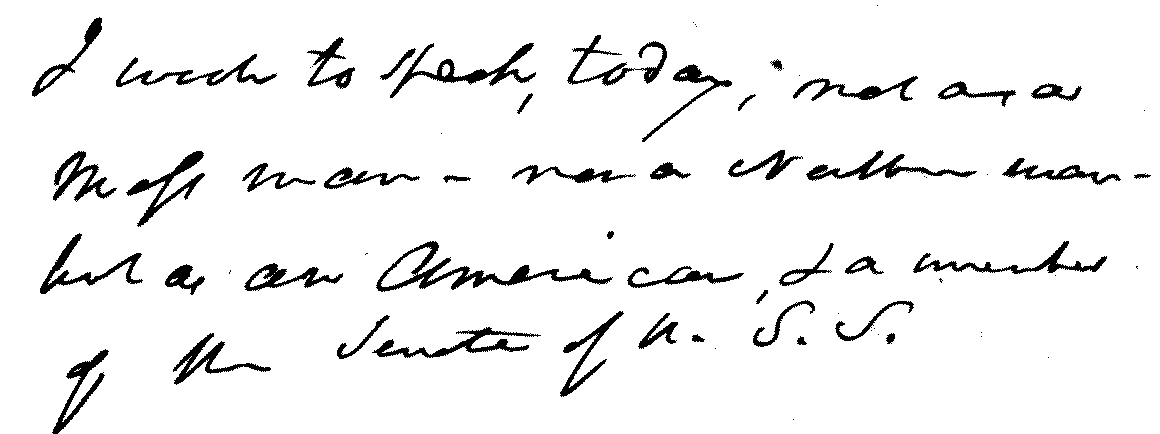 I wish to speak, today, not as a
Mass man - nor a Northern man -
but as an American, & a member
of the Senate of U. S. S.